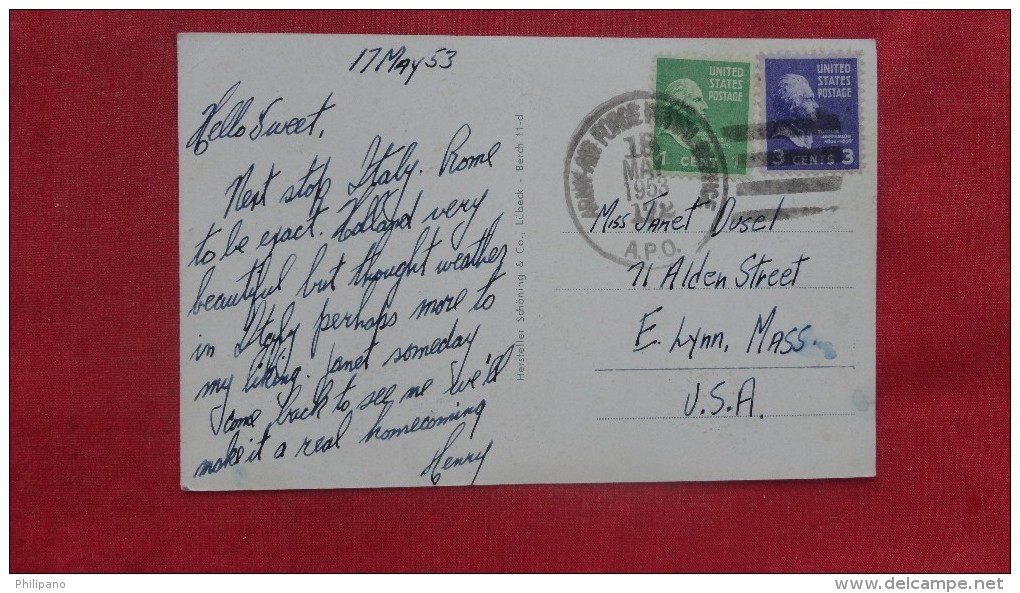 17 May 53
Hello Sweet,
Next stop Italy. Rome
to be exact. Holland very
beautiful but thought weather
in Italy perhaps more to
my liking. Janet someday
come back to see me we'll
make it a real homecoming
Henry
Hersteller Schöning & Co., Lübeck - Berch 11-d
UNITED
STATES
POSTAGE
1 CENT 1
UNITED
STATES
POSTAGE
THOMAS
JEFFERSON
3 CENTS 3
ARMY-AIR FORCE POSTAL SERVICE
18
MAY
1953
172
A.P.O.
Miss Janet Dusel
71 Alden Street
E. Lynn, Mass.
U.S.A.
Philipano
www.delcampe.net